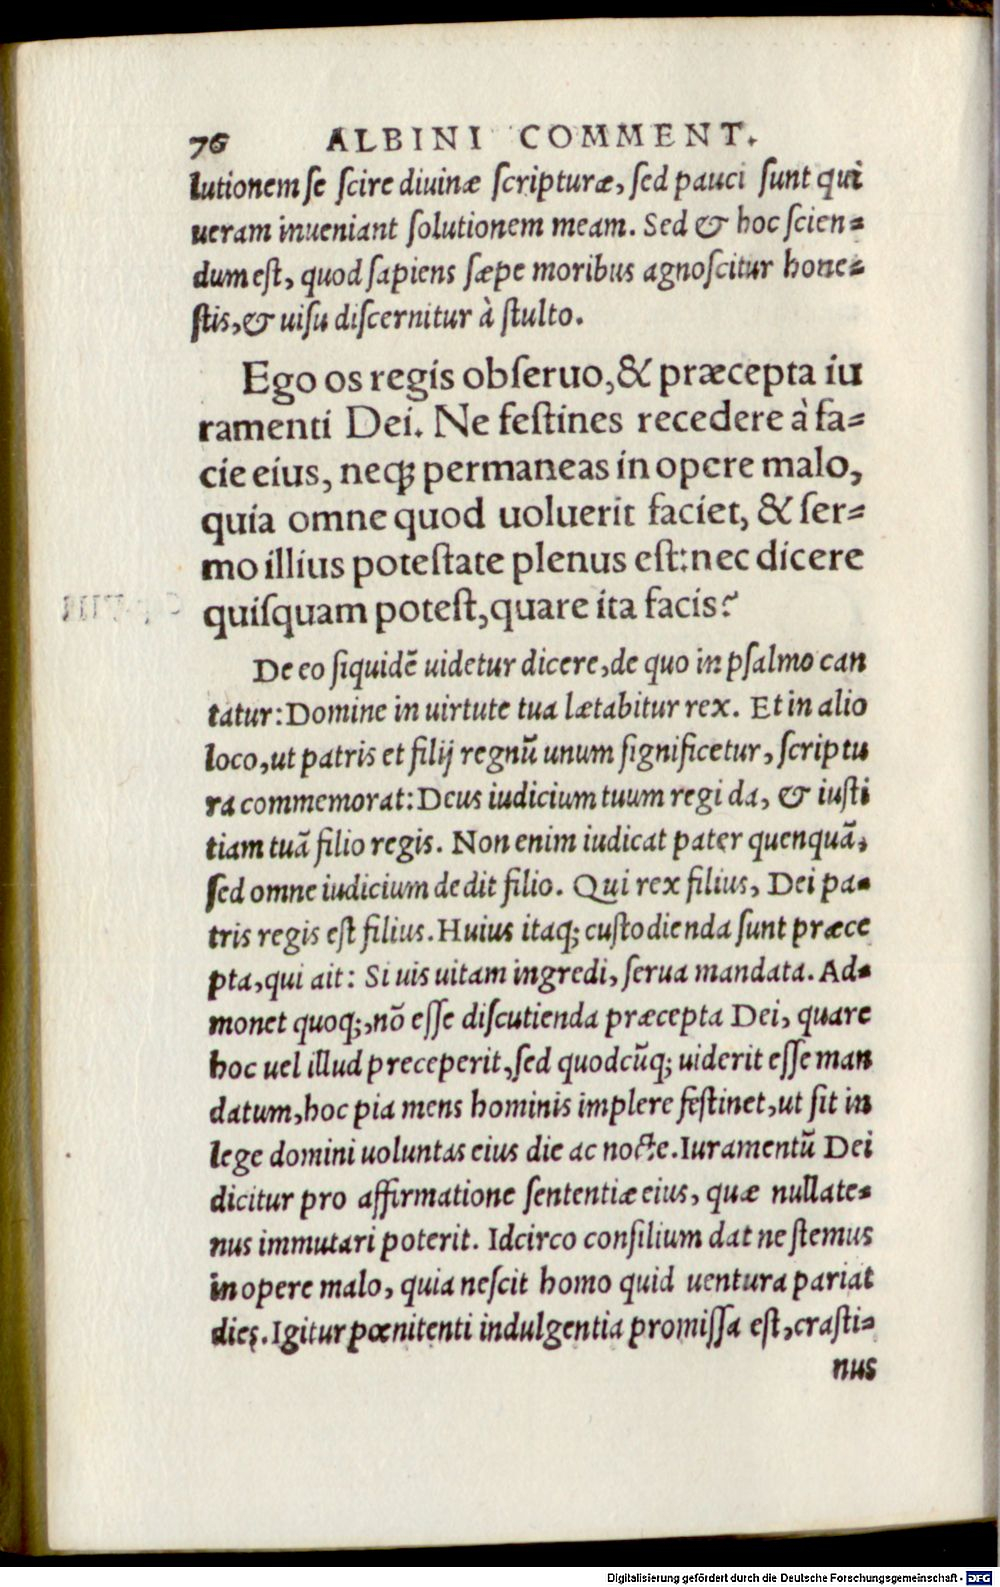 76 ALBINI COMMENT.
lutionem se scire diuinæ scripturæ, sed pauci sunt qui
ueram inueniant solutionem meam. Sed & hoc scien=
dum est, quod sapiens sæpe moribus agnoscitur hone=
stis, & uisu discernitur à stulto.
Ego os regis obseruo, & præcepta iu
ramenti Dei. Ne festines recedere à fa=
cie eius, neq; permaneas in opere malo,
quia omne quod uoluerit faciet, & ser=
mo illius potestate plenus est: nec dicere
quisquam potest, quare ita facis?
De eo siquidē uidetur dicere, de quo in psalmo can
tatur: Domine in uirtute tua lætabitur rex. Et in alio
loco, ut patris et filij regnū unum significetur, scriptu
ra commemorat: Deus iudicium tuum regi da, & iusti
tiam tuā filio regis. Non enim iudicat pater quenquā,
sed omne iudicium dedit filio. Qui rex filius, Dei pa=
tris regis est filius. Huius itaq; custodienda sunt præce
pta, qui ait: Si uis uitam ingredi, serua mandata. Ad=
monet quoq;, nō esse discutienda præcepta Dei, quare
hoc uel illud preceperit, sed quodcūq; uiderit esse man
datum, hoc pia mens hominis implere festinet, ut sit in
lege domini uoluntas eius die ac nocte. Iuramentū Dei
dicitur pro affirmatione sententiæ eius, quæ nullate=
nus immutari poterit. Idcirco consilium dat ne stemus
in opere malo, quia nescit homo quid uentura pariat
dies. Igitur pœnitenti indulgentia promissa est, crasti=
nus
Digitalisierung gefördert durch die Deutsche Forschungsgemeinschaft - DFG